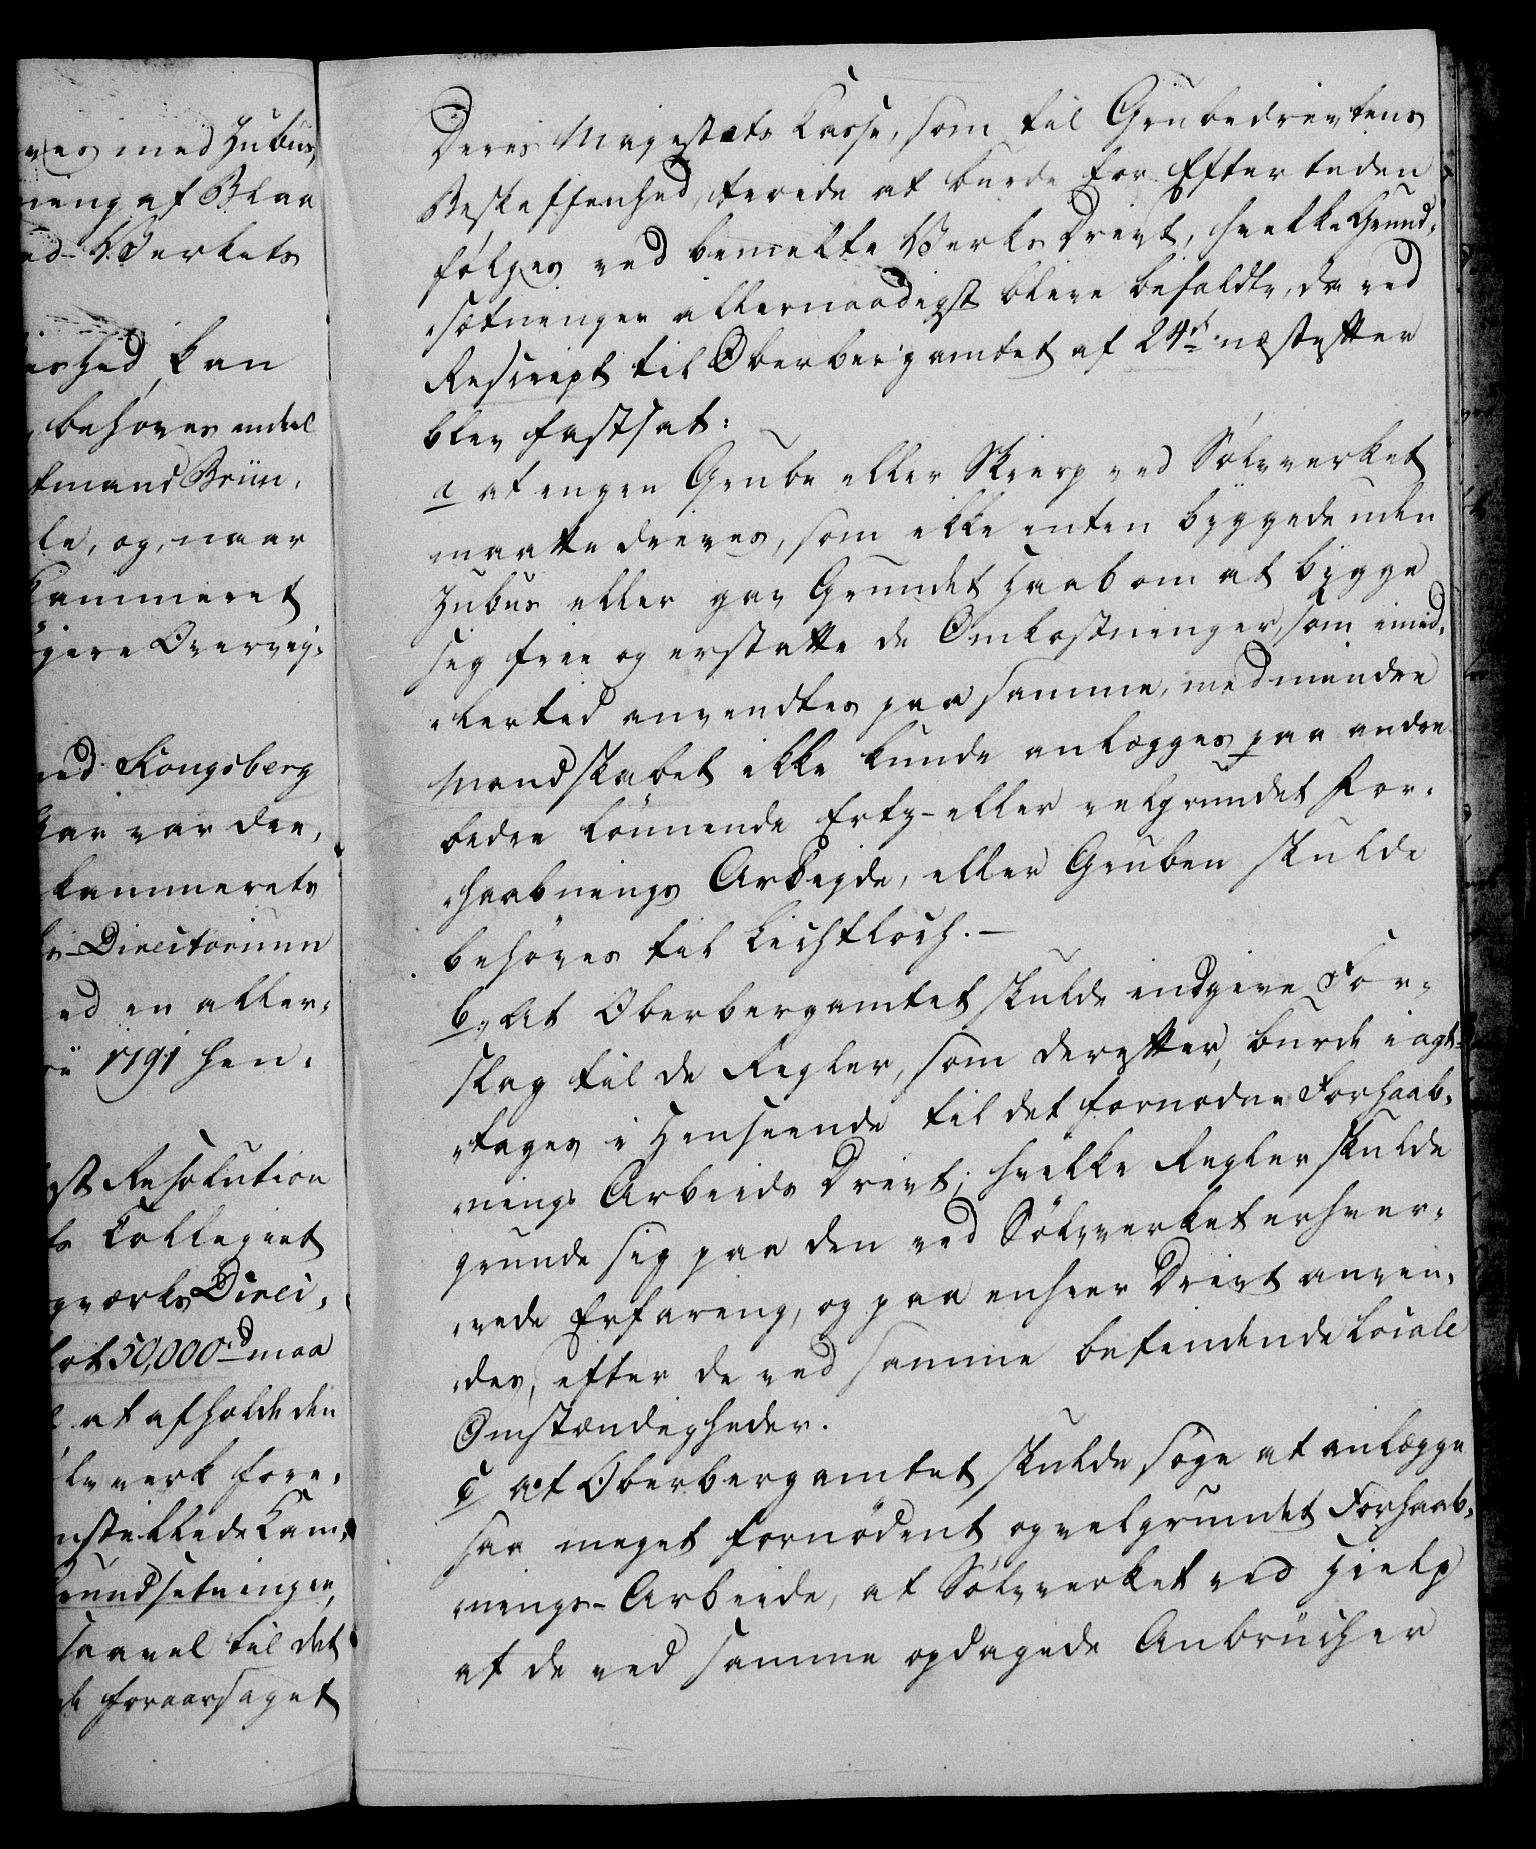 ves med Zubus,
ning af Blaa
ed Værkets
ished, kan
behøves endel
tmand Brün,
le, og, naar
Kammeret
gere Overvej,
ved Kongsberg
Aar var der,
kammerets
s-Directorium
ed en aller,
rii 1791 hen,
gst Resolution
ts Collegiet
gværks Direc,
lot 50,000rd maa
at afholde den
lvverk fore,
nstillede Kam,
rundsetninger,
saavel til det
de foraarsaget
Deres Majestæts Kasse, som til Grubedrivtens
Beskaffenhed, troede at burde for Eftertiden
følges ved bemelte Verks Drivt, hvilke Grund,
sætninger allernaadigst bleve befaldte, da ved
Rescript til Oberbergamtet af 24d næstefter
blev fastsat:
a at ingen Grube eller Skierp ved Sølvverket
maatte drives, som ikke enten byggede uden
Zubus eller gav Grundet Haab om at bygge
sig frie og erstatte de Omkostninger, som imid,
lertid anvendtes paa samme, med mindre
Mandskabet ikke kunde anlægges paa andre
bedre lönnende Ertz- eller velgrundet For,
haabnings Arbeyde, eller Gruben skulde
behöves til Lichtloch. –
b, At Oberbergamtet skulde indgive For,
slag til de Regler, som derefter, burde iagt,
tages i Henseende til det fornødne Forhaab,
nings Arbeids Drivt; hvilke Regler skulde
grunde sig paa den ved Sølvverket erhver,
vede Erfaring, og paa enhver Drivt anven,
des, efter de ved samme befindende Locale
Omstændigheder.
c at Oberbergamtet skulde søge at anlægge
saa meget fornødent og velgrundet Forhaab,
nings-Arbeide, at Sølvverket ved Hielp
af de ved samme opdagede Anbrücher